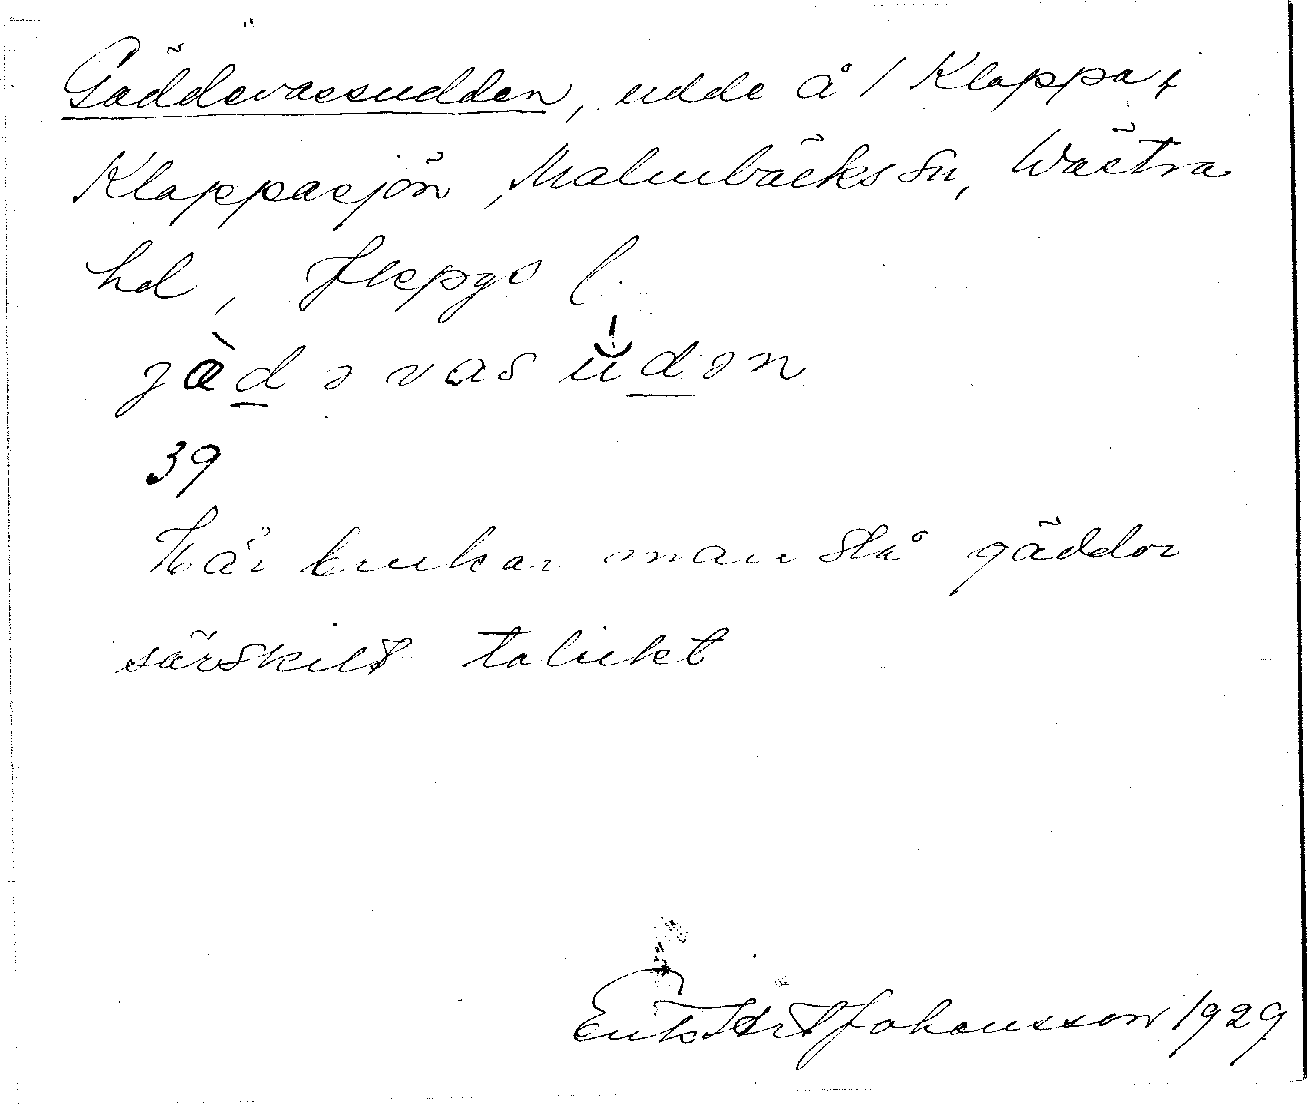 Gäddevassudden, udde å 1 Klappa,
Klappasjön, Malmbäcks sn, Västra
hd, Jkpgs l.
jàdəvasúdən
39
Här brukar man slå gäddor
särskilt talrikt
Johansson 1929